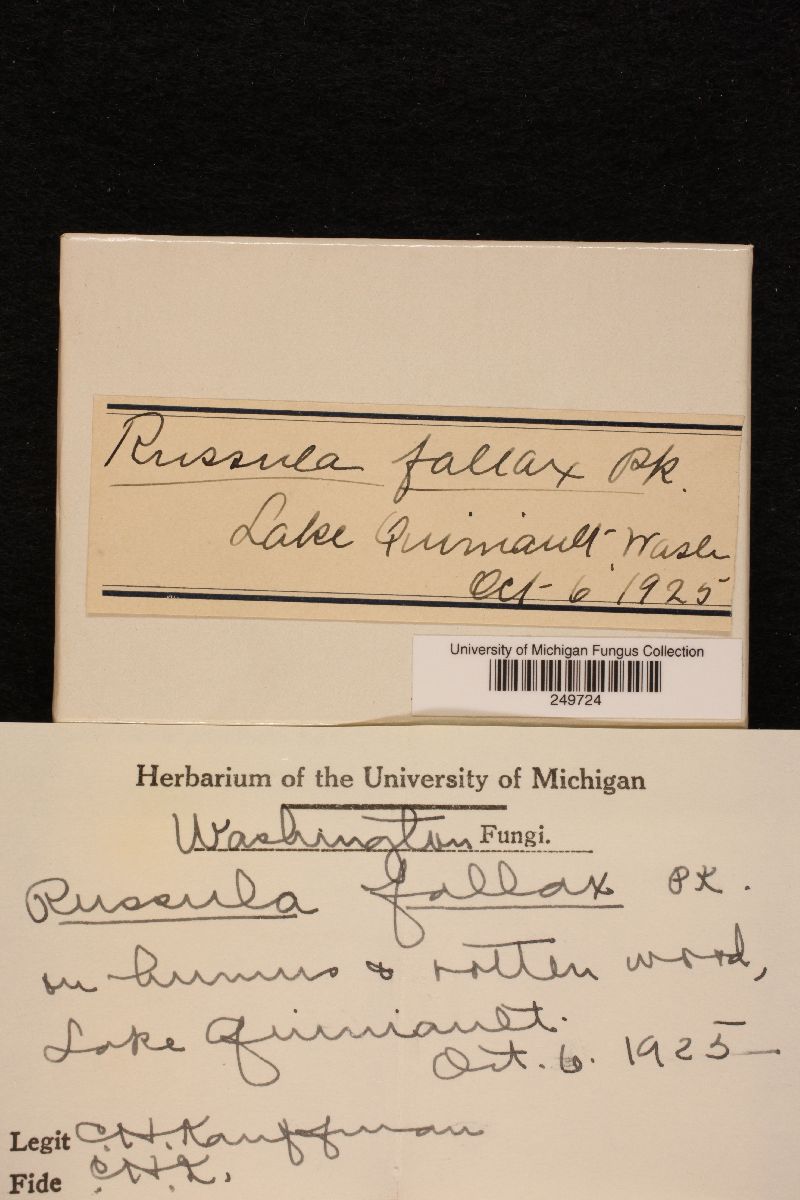 Russula fallax Pk.
Lake Quiniault, Wash
Oct 6 1925
University of Michigan Fungus Collection
249724
Herbarium of the University of Michigan
Washington Fungi.
Russula fallax PK.
on humus & rotten wood,
Lake Quiniault.
Oct. 6. 1925
Legit C.H. Kauffman
Fide C.H.K.